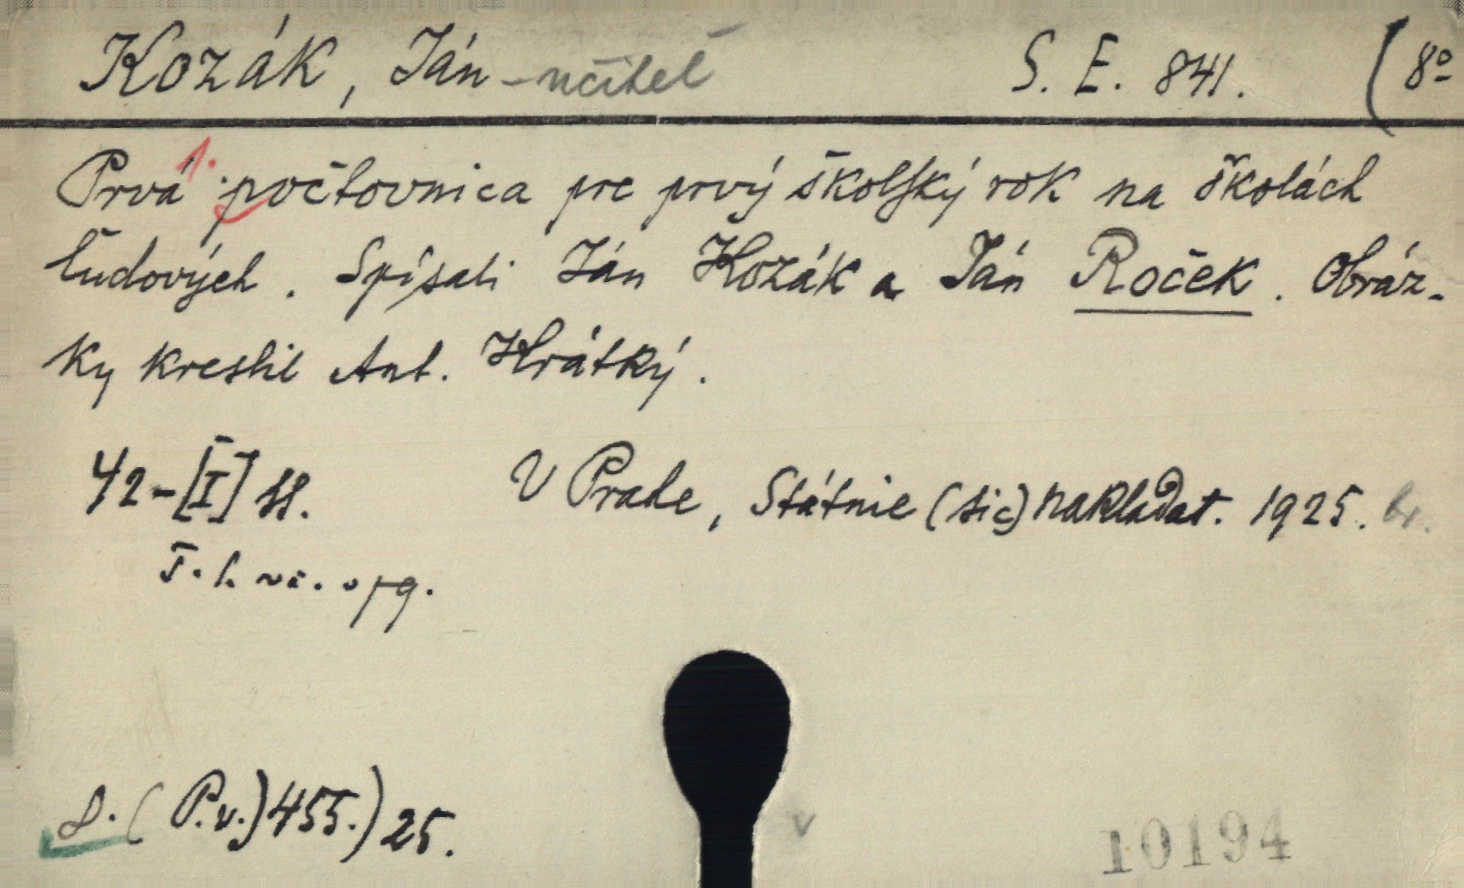 Kozák, Ján - učiteľ S. E. 841. (8º
1.
Prvá počtovnica pre prvý školský rok na školách
ľudových. Spísali Ján Kozák a Ján Roček. Obráz-
ky kreslil Ant. Hrátký.
42-[I] ss. V Prahe, Státnie (sic) nakladat. 1925. br.
8.(P.v.)455.)25.
v
10194